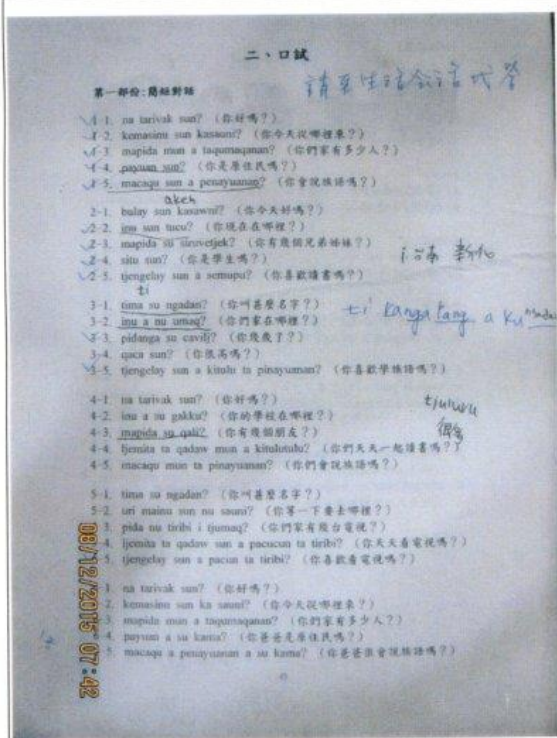 二、口試
請至生活會話代答
第一部份:簡短對話
1-1. na tarivak sun? (你好嗎?)
1-2. kemasinu sun kasauni? (你今天從哪裡來?)
1-3. mapida mun a taqumaqanan? (你們家有多少人?)
1-4. payuan sun? (你是原住民嗎?)
1-5. macaqu sun a penayuanan? (你會說族語嗎?)
2-1. bulay sun kasawni? (你今天好嗎?)
2-2. inu sun tucu? (你現在在哪裡?)
2-3. mapida su siruvetjek? (你有幾個兄弟姊妹?)
2-4. situ sun? (你是學生嗎?)
2-5. tjengelay sun a semupu? (你喜歡讀書嗎?)
ti
3-1. tima su ngadan? (你叫甚麼名字?)
3-2. inu a nu umaq? (你們家在哪裡?)
3-3. pidanga su cavilj? (你幾歲了?)
3-4. qaca sun? (你很高嗎?)
3-5. tjengelay sun a kitulu ta pinayuanan? (你喜歡學族語嗎?)
4-1. na tarivak sun? (你好嗎?)
4-2. inu a su gakku? (你的學校在哪裡?)
4-3. mapida su qali? (你有幾個朋友?)
4-4. ljemita ta qadaw mun a kitulutulu? (你們天天一起讀書嗎?)
4-5. macaqu mun ta pinayuanan? (你們會說族語嗎?)
5-1. tima su ngadan? (你叫甚麼名字?)
5-2. uri mainu sun nu sauni? (你等一下要去哪裡?)
5-3. pida nu tiribi i tjumaq? (你們家有幾台電視?)
4. ljemita ta qadaw sun a pacucun ta tiribi? (你天天看電視嗎?)
5. tjengelay sun a pacun ta tiribi? (你喜歡看電視嗎?)
1. na tarivak sun? (你好嗎?)
2. kemasinu sun ka sauni? (你今天從哪裡來?)
3. mapida mun a taqumaqanan? (你們家有多少人?)
4. payuan a su kama? (你爸爸是原住民嗎?)
5. macaqu a penayuanan a su kama? (你爸爸很會說族語嗎?)
08/12/2015 07:42